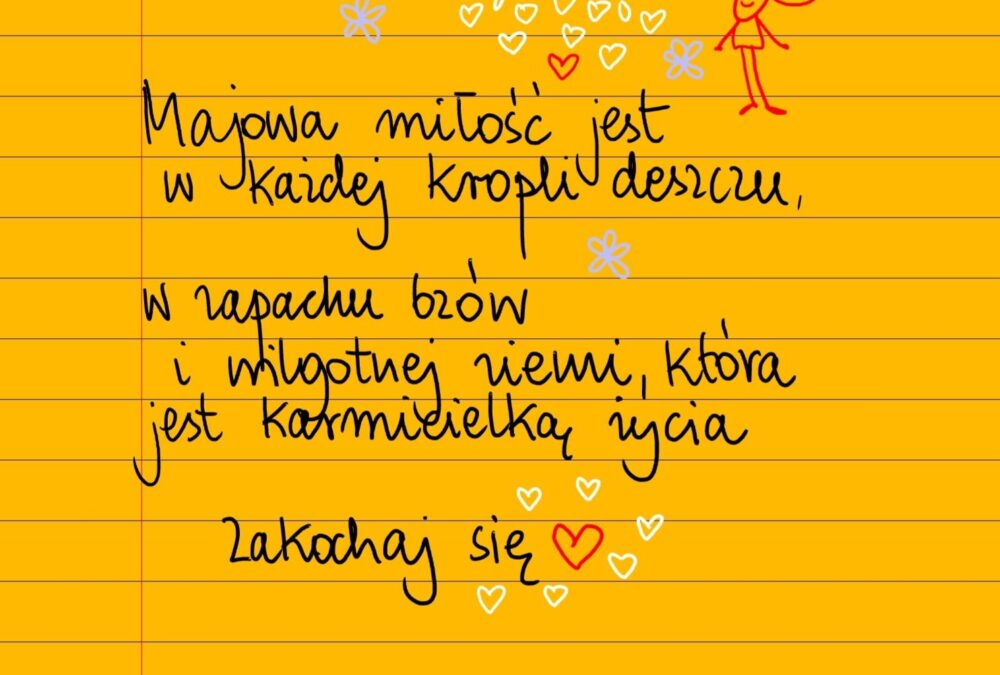 Majowa miłość jest
w każdej kropli deszczu,
w zapachu bzów
i wilgotnej ziemi, która
jest karmicielką życia
Zakochaj się